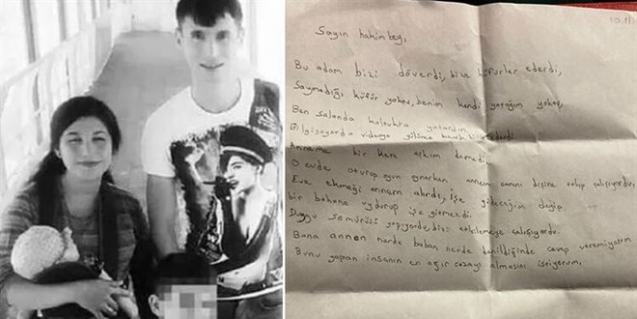 10.11
Sayın hakim bey,
Bu adam bizi döverdi, bize küfürler ederdi,
Saymadığı küfür yoktu, benim kendi yatağım yoktu,
Ben salonda koltukta yatardım
Bilgisayarda videoya
Anneme bir kere aşkım demedi
O evde oturup oyun oynarken annem canını dişine takıp çalışıyordu,
Eve ekmeği annem alırdı, işe gideceğim deyip
bir bahane uydurup işe girmezdi.
Duygu sömürüsü yapıyordu bizi etkilemeye çalışıyordu.
Bana annen nerde baban nerde denildiğinde cevap veremiyorum
Bunu yapan insanın en ağır cezayı almasını istiyorum.